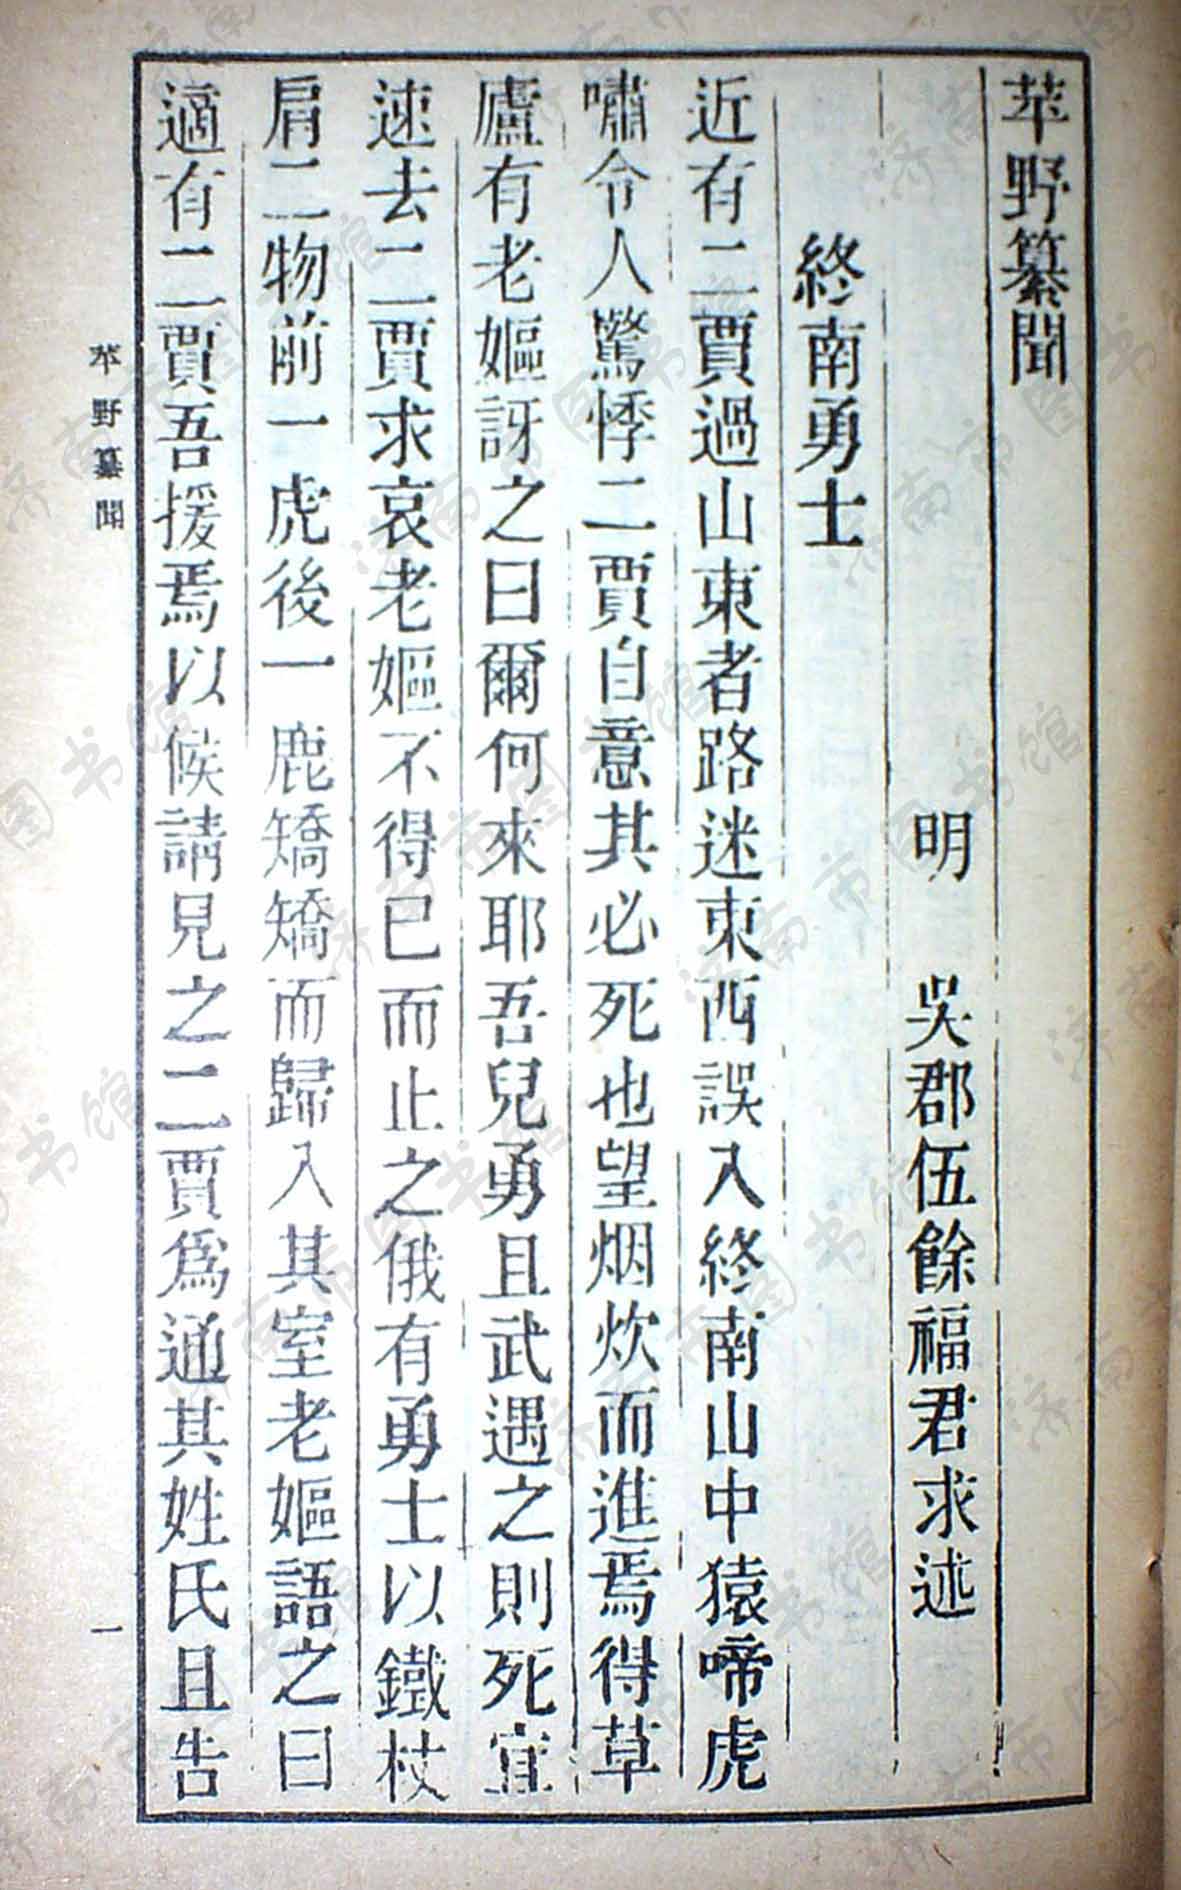 苹野纂聞
明　吳郡伍餘福君求述
終南勇士
近有二賈過山東者路迷東西誤入終南山中猿啼虎
嘯令人驚悸二賈自意其必死也望烟炊而進焉得草
廬有老嫗訝之曰爾何來耶吾兒勇且武遇之則死宜
速去二賈求哀老嫗不得已而止之俄有勇士以鐵杖
肩二物前一虎後一鹿矯矯而歸入其室老嫗語之曰
適有二賈吾援焉以候請見之二賈爲通其姓氏且告
苹野纂聞
一
济南市图书馆